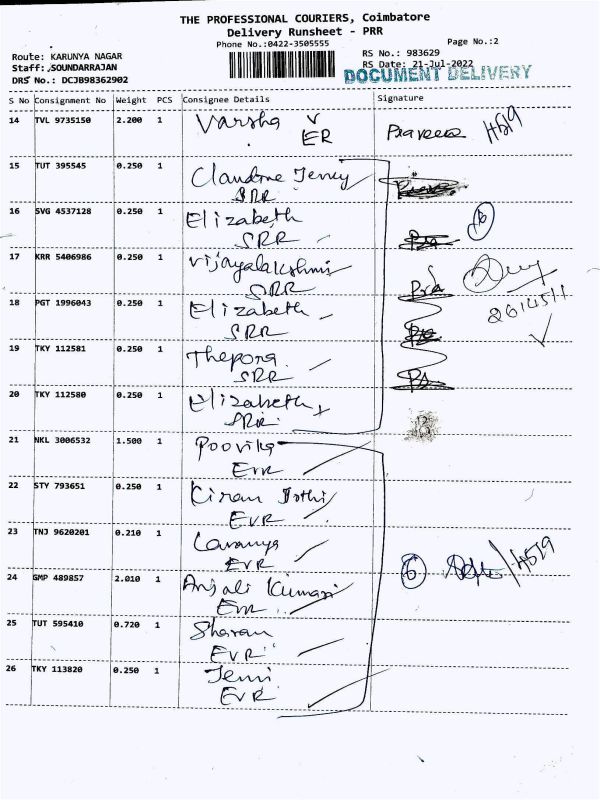 THE PROFESSIONAL COURIERS, Coimbatore
Delivery Runsheet - PRR
Phone No.:0422-3505555
Page No.:2
Route: KARUNYA NAGAR
RS No.: 983629
Staff: SOUNDARRAJAN
RS Date: 21-Jul-2022
DOCUMENT DELIVERY
DRS No.: DCJB98362902
S No Consignment No Weight PCS Consignee Details Signature
14 TVL 9735150 2.200 1 Varsha V
ER Praveen 4519
15 TUT 395545 0.250 1
SRR
16 SVG 4537128 0.250 1 Elizabeth
SRR
17 KRR 5406986 0.250 1 Vijayalakshmi
SRR
18 PGT 1996043 0.250 1 Elizabeth
SRR
19 TKY 112581 0.250 1
SRR
20 TKY 112580 0.250 1 Elizabeth
SRR
21 NKL 3006532 1.500 1 Poovika
EVR
22 STY 793651 0.250 1 Kiran Jothi
EVR
23 TNJ 9620201 0.210 1 Lavanya
EVR
24 GMP 489857 2.010 1 Anjali Kumari
EVR
6 4519
25 TUT 595410 0.720 1 Sharan
EVR
26 TKY 113820 0.250 1 Jemi
EVR